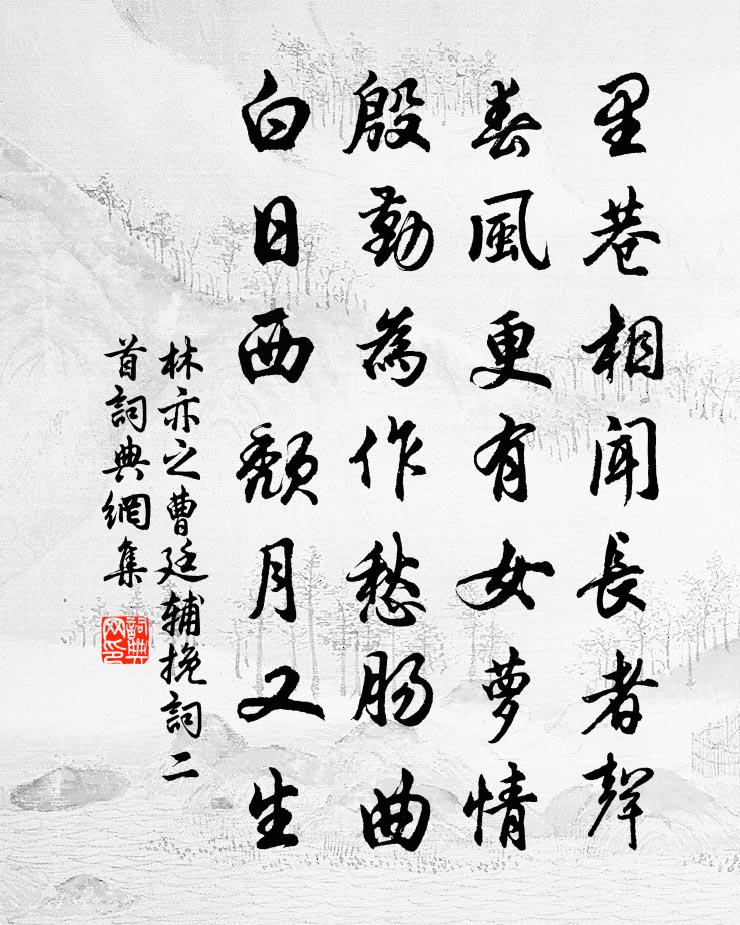 里巷相聞長者聲
春風更有女夢情
殷勤為作愁腸曲
白日西頹月又生
林亦之曹廷辅挽詞二
首詞典網集
詞典
网印